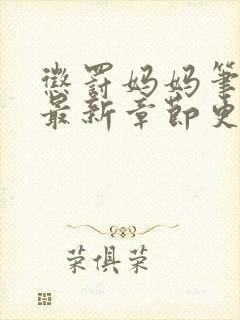 懲罰妈妈筆
最新章節史
荣俱荣